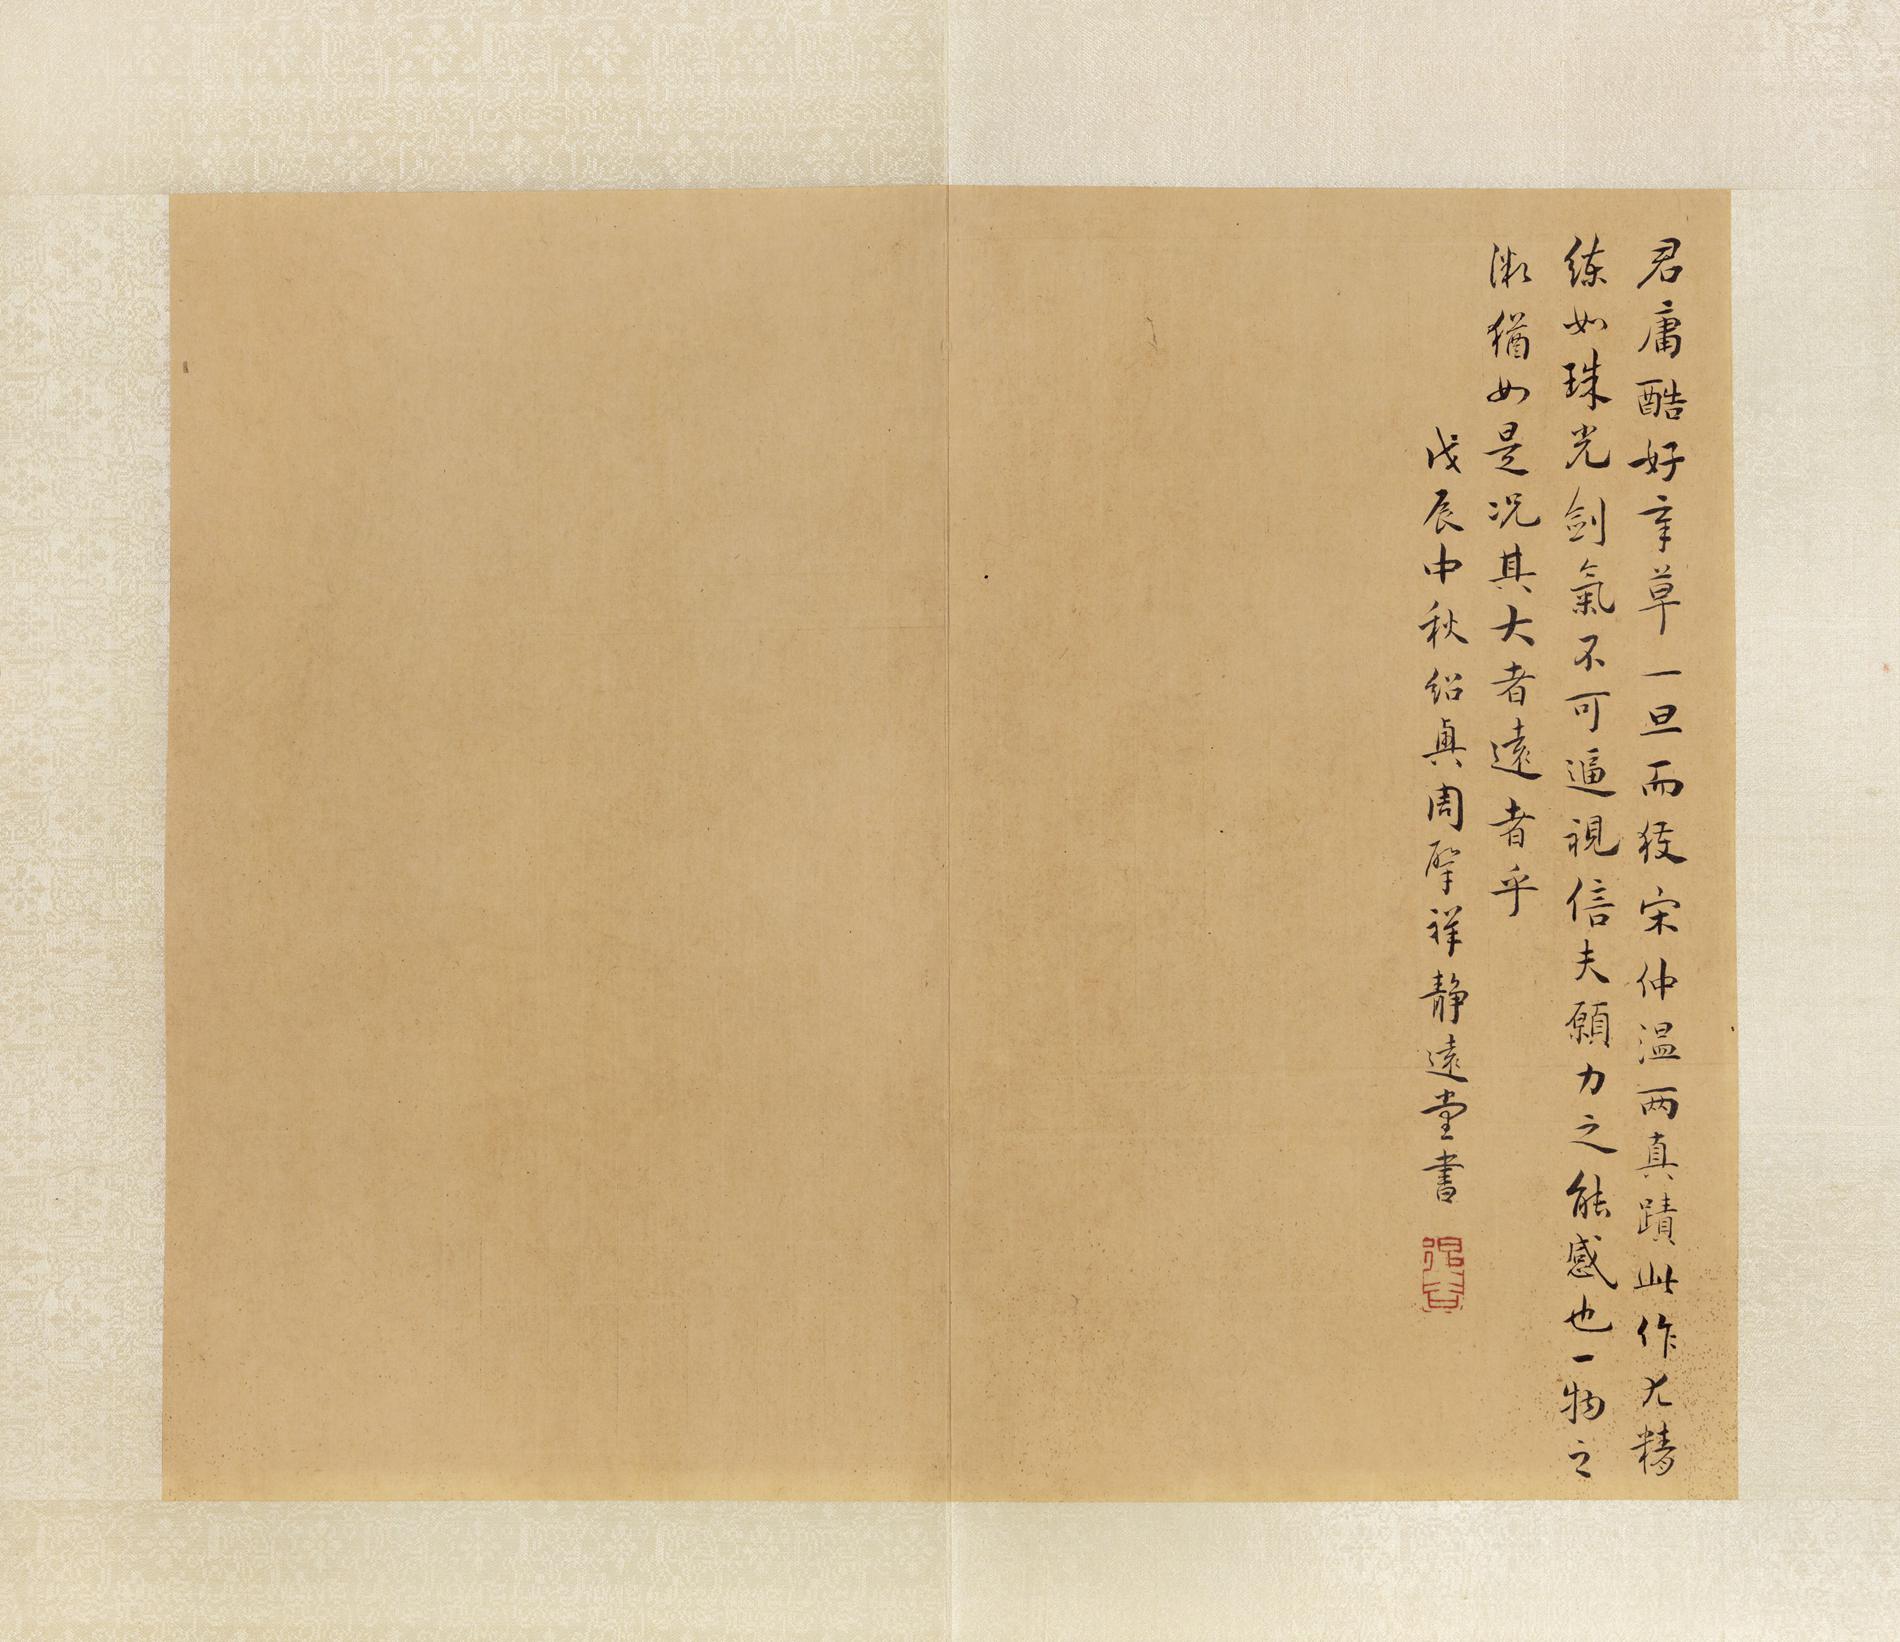 君庸酷好章草一旦而获宋仲温两真蹟此作尤精
练如珠光剑氣不可逼視信夫願力之能感也一物之
微猶如是况其大者遠者乎
戊辰中秋绍真周肇祥静遠堂書